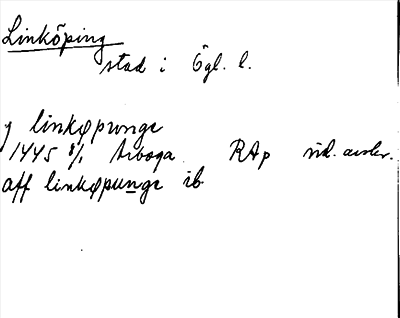 Linköping
stad i Ögl. l.
j linkøpunge
1445 8/1 Arboga RAp vid. avskr.
aff linkøpunge ib